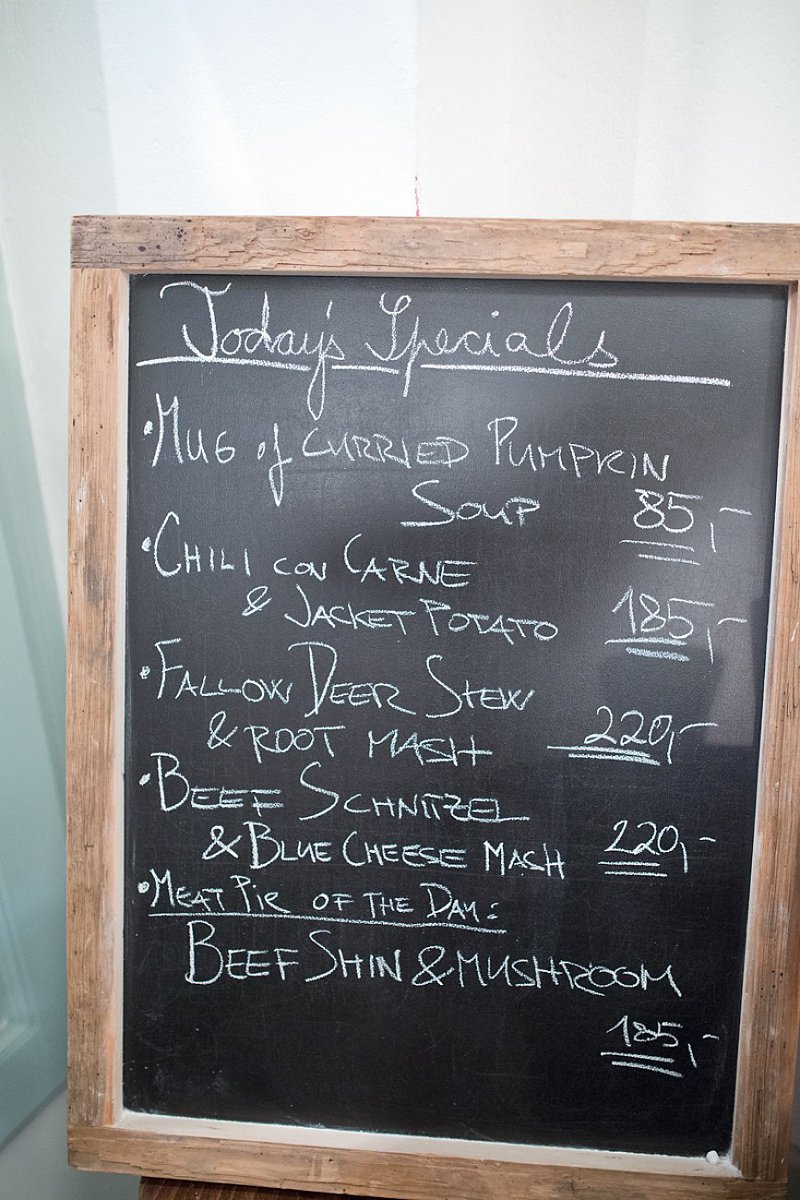 Today's Specials
• Mug of Curried Pumpkin
Soup 85,-
• Chili con Carne
& Jacket Potato 185,-
• Fallow Deer Stew
& Root Mash 220,-
• Beef Schnitzel
& Blue Cheese Mash 220,-
• Meat Pie of the Day:
Beef Shin & Mushroom
185,-